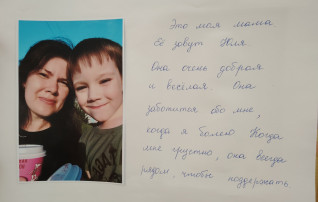 Это моя мама
Её зовут Юля
Она очень добрая
и весёлая Она
заботится обо мне,
когда я болею Когда
мне грустно, она всегда
рядом, чтобы поддержать